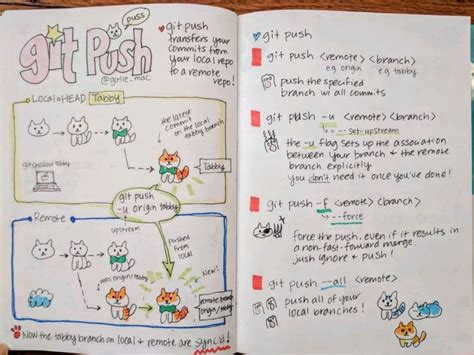 git Push
puss
@girlie_mac
git push
transfers your
commits from
your local repo
to a remote
repo!
Local HEAD Tabby
the latest
commit
on the local
tabby branch
git checkout tabby
Tabby
git push
-u origin tabby
Remote
upstream
pushed
from
local
was origin/tabby
New!
remote branch
origin/tabby
Now the tabby branch on local & remote are sync'd!
git push
git push <remote> <branch>
e.g. origin e.g. tabby
push the specified
branch w/ all commits
git push -u <remote> <branch>
--set-upstream
the -u flag sets up the association
between your branch & the remote
branch explicitly
you don't need it once you've done!
git push -f <remote> <branch>
--force
Force the push, even if it results in
a non-fast-forward merge.
just ignore & push!
git push --all <remote>
push all of your
local branches!